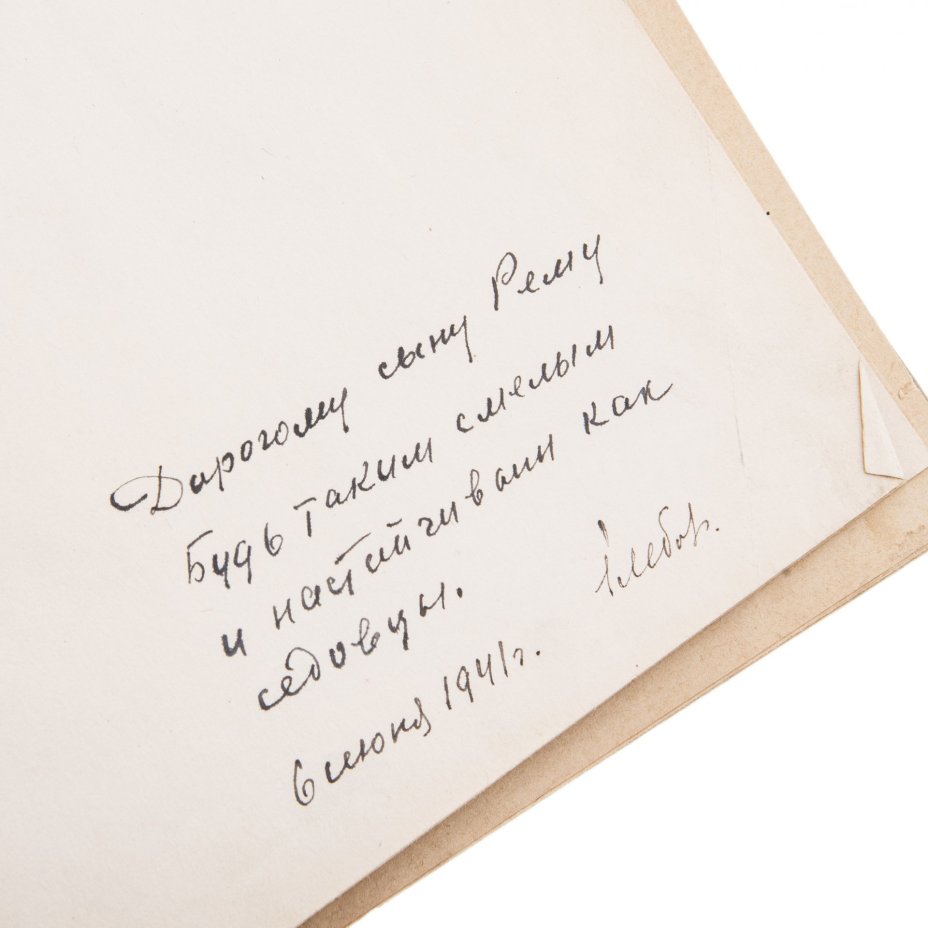 Дорогому сыну Рему
Будь таким смелым
и настойчивым как
седовцы.
6 июня 1941 г.